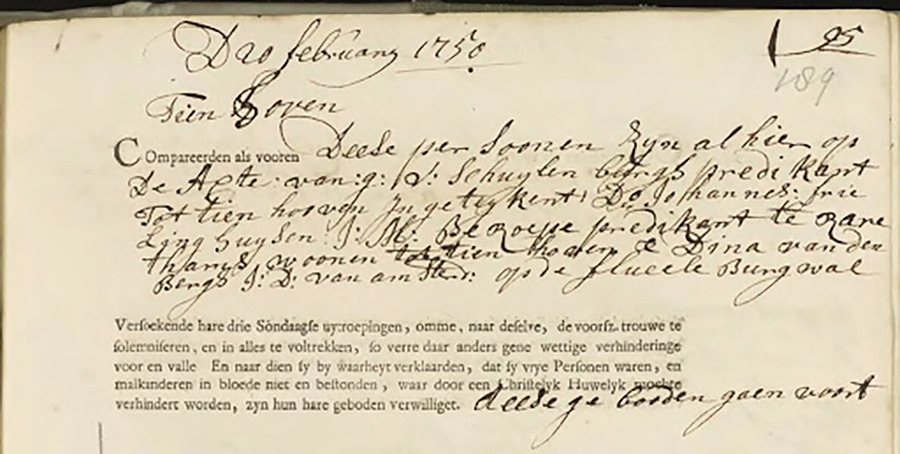 D 20 february 1750
95
189
Tien Hoven
Compareerden als vooren Deese per soonen Zyn al hier op
De Acte: van: g: V: Schuylen burgs predikant
Tot tien hooven Ingeteykent: Do Johannes: frie
Ling Huysen: J: M: Beroepe predikant te
woonen tot tien hoven & Dina van den
Bergh J: D: van amsterd: op de flueele Burgwal
Versoekende hare drie Sondaagse uytroepingen, omme, naar deselve, de voorsz. trouwe te
solemniseren, en in alles te voltrekken, so verre daar anders gene wettige verhinderinge
voor en valle En naar dien sy by waarheyt verklaarden, dat sy vrye Personen waren, en
malkanderen in bloede niet en bestonden, waar door een Christelyk Huwelyk mochte
verhindert worden, zyn hun hare geboden verwilliget. deese ge booden gaen voort